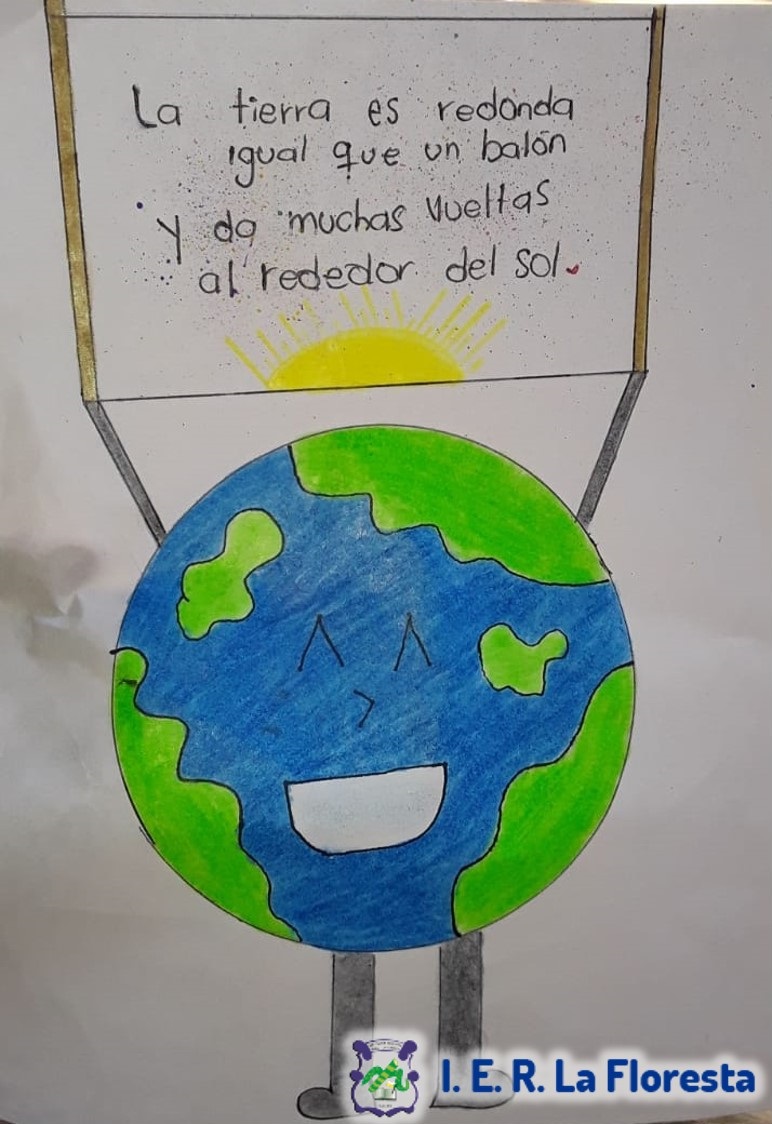 La tierra es redonda
igual que un balón
y da muchas vueltas
al rededor del sol.
I. E. R. La Floresta